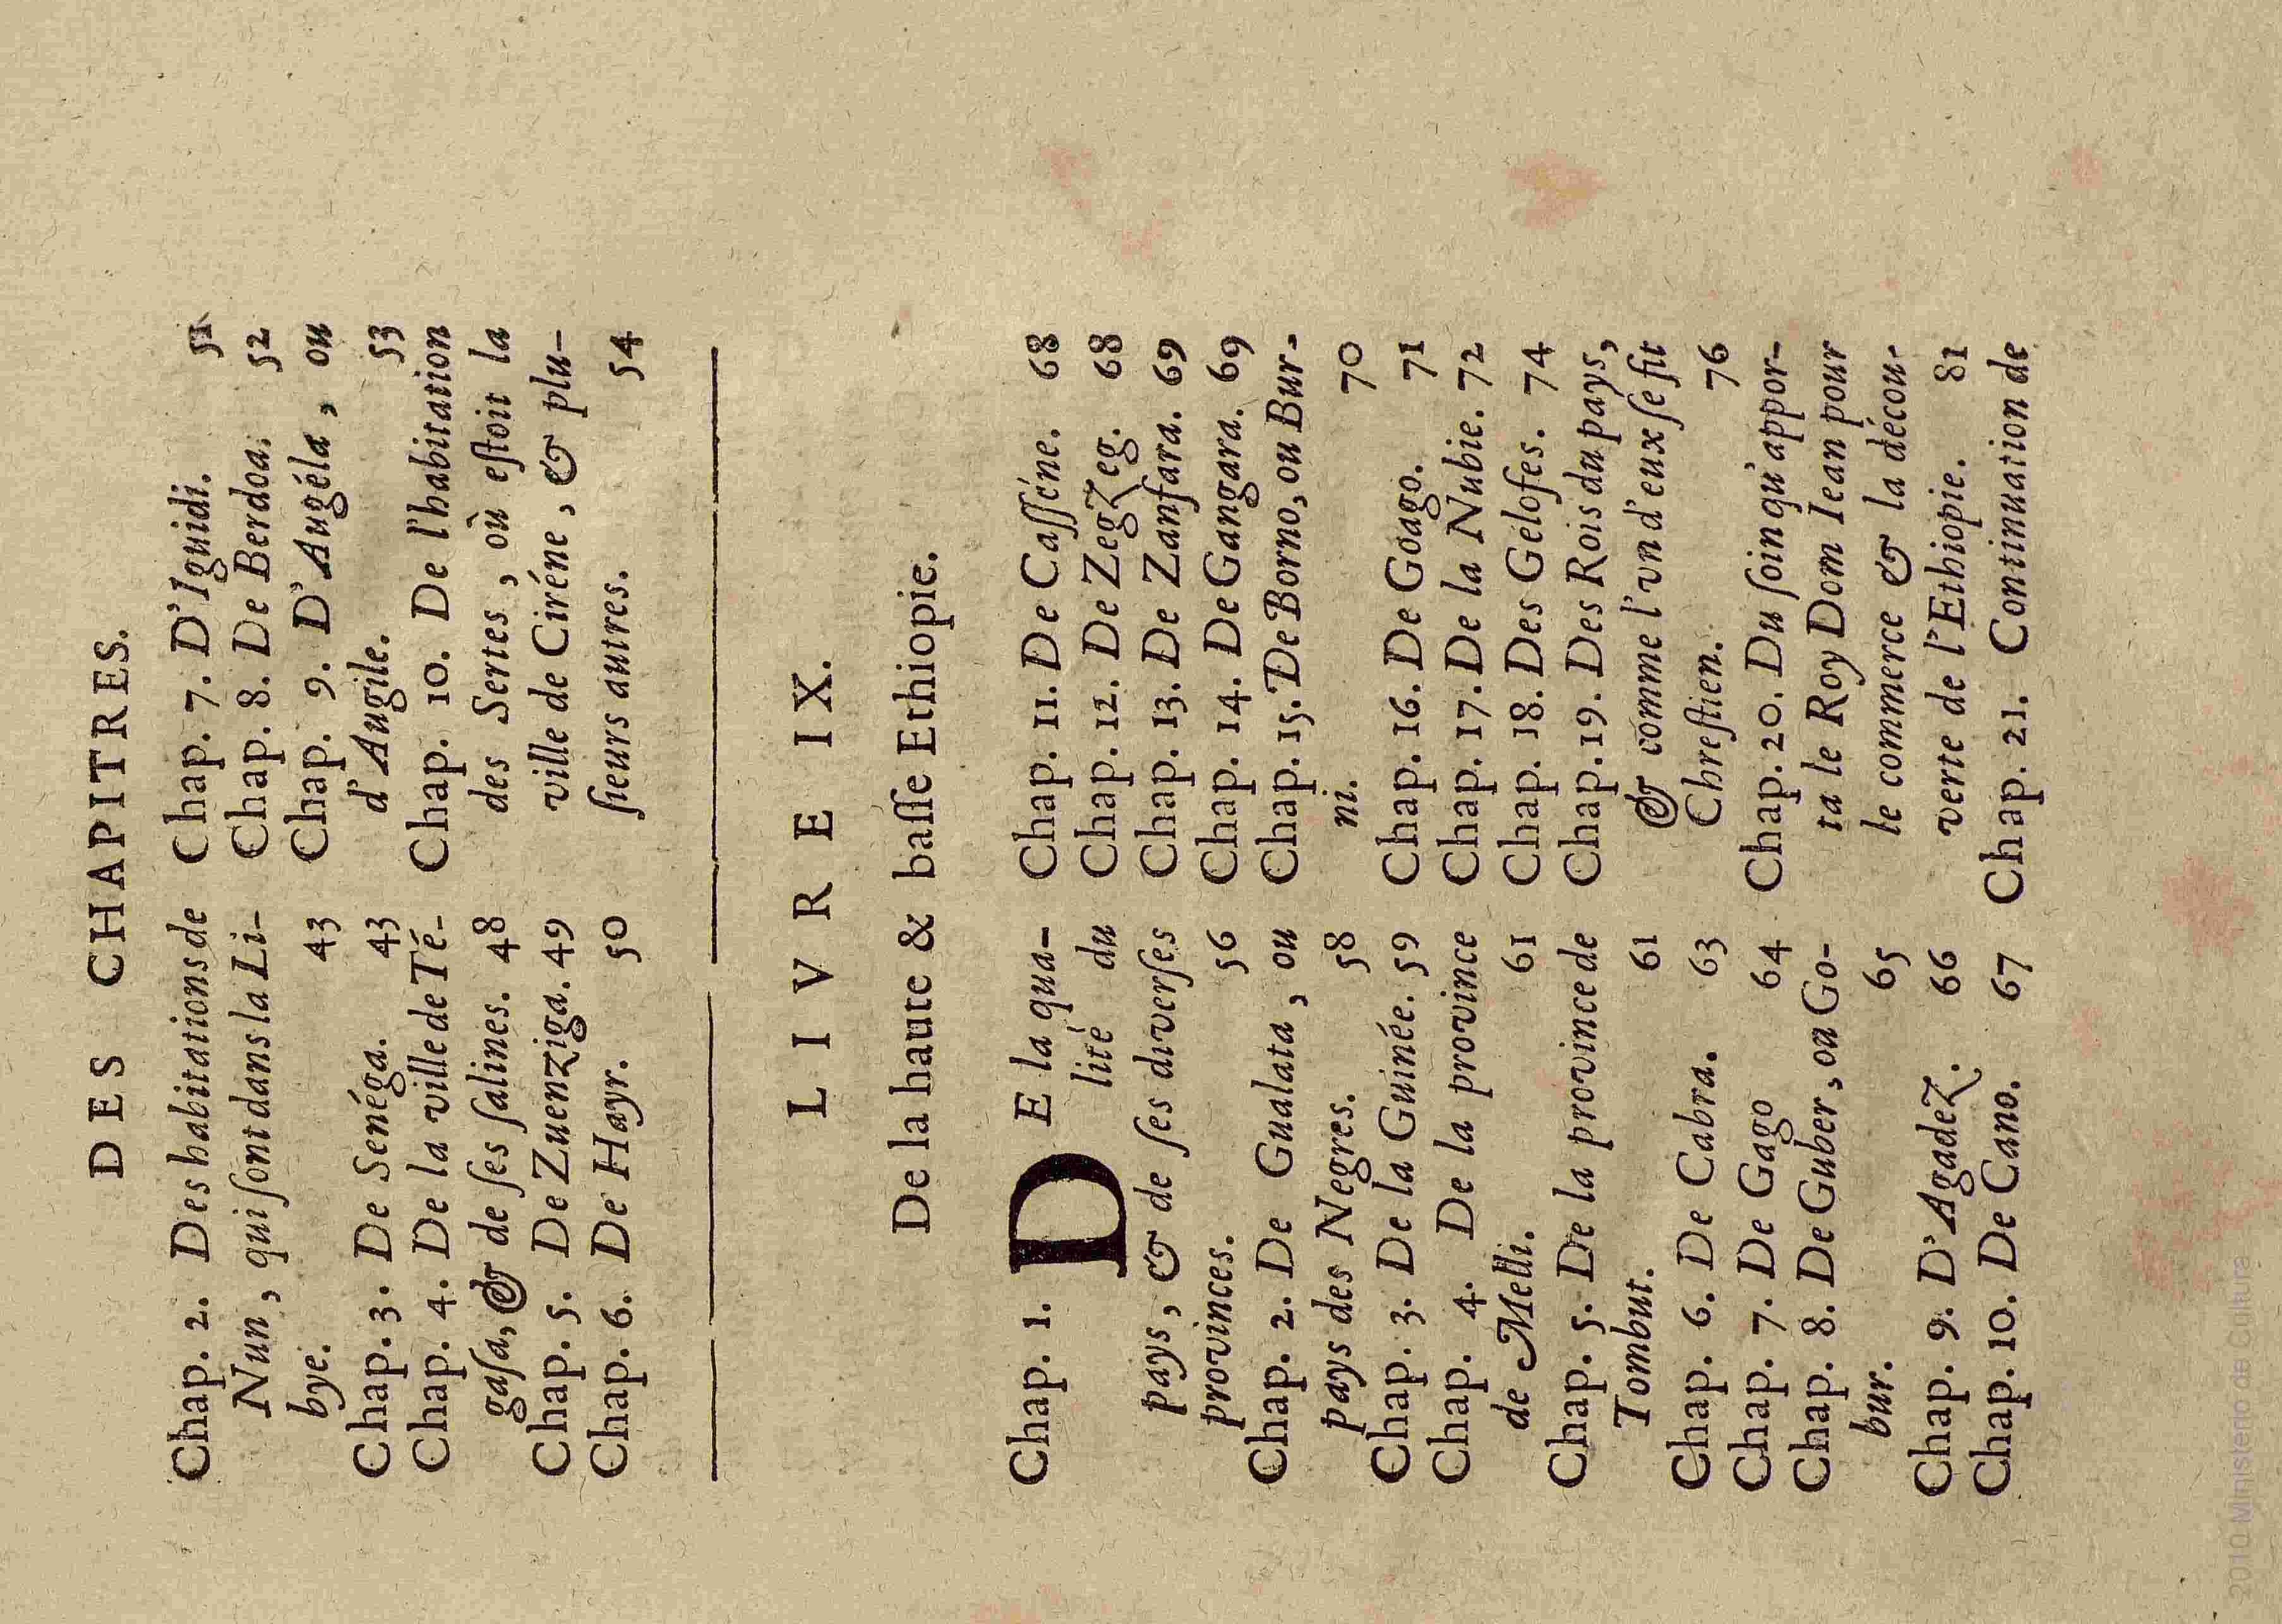 DES CHAPITRES.
Chap. 2. Des habitations de
Nun, qui ſont dans la Li-
bye. 43
Chap. 3. De Senéga. 43
Chap. 4. De la ville de Té-
gaſa, & de ſes ſalines. 48
Chap. 5. De Zuenziga. 49
Chap. 6. De Hayr. 50
Chap. 7. D'Iguidi. 51
Chap. 8. De Berdoa. 52
Chap. 9. D'Augéla, ou
d'Augile. 53
Chap. 10. De l'habitation
des Sertes, où eſtoit la
ville de Ciréne, & plu-
ſieurs autres. 54
LIVRE IX.
De la haute & baſſe Ethiopie.
Chap. 1. DE la qua-
lité du
pays, & de ſes diverſes
provinces. 56
Chap. 2. De Gualata, ou
pays des Negres. 58
Chap. 3. De la Guinée. 59
Chap. 4. De la province
de Melli. 61
Chap. 5. De la province de
Tombut. 61
Chap. 6. De Cabra. 63
Chap. 7. De Gago 64
Chap. 8. De Guber, ou Go-
bur. 65
Chap. 9. D'Agadez. 66
Chap. 10. De Cano. 67
Chap. 11. De Caſſéne. 68
Chap. 12. De Zegzeg. 68
Chap. 13. De Zanfara. 69
Chap. 14. De Gangara. 69
Chap. 15. De Borno, ou Bur-
ni. 70
Chap. 16. De Goago. 71
Chap. 17. De la Nubie. 72
Chap. 18. Des Gélofes. 74
Chap. 19. Des Rois du pays,
& comme l'vn d'eux ſe fit
Chreſtien. 76
Chap. 20. Du ſoin qu'appor-
ta le Roy Dom Iean pour
le commerce & la décou-
verte de l'Ethiopie. 81
Chap. 21. Continuation de
2010 Ministerio de Cultura